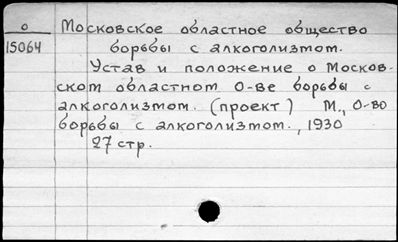 о
15064
Московское областное общество
борьбы с алкоголизмом.
Устав и положение о Москов-
ском областном О-ве борьбы с
алкоголизмом. (проект) М., О-во
борьбы с алкоголизмом., 1930
27 стр.